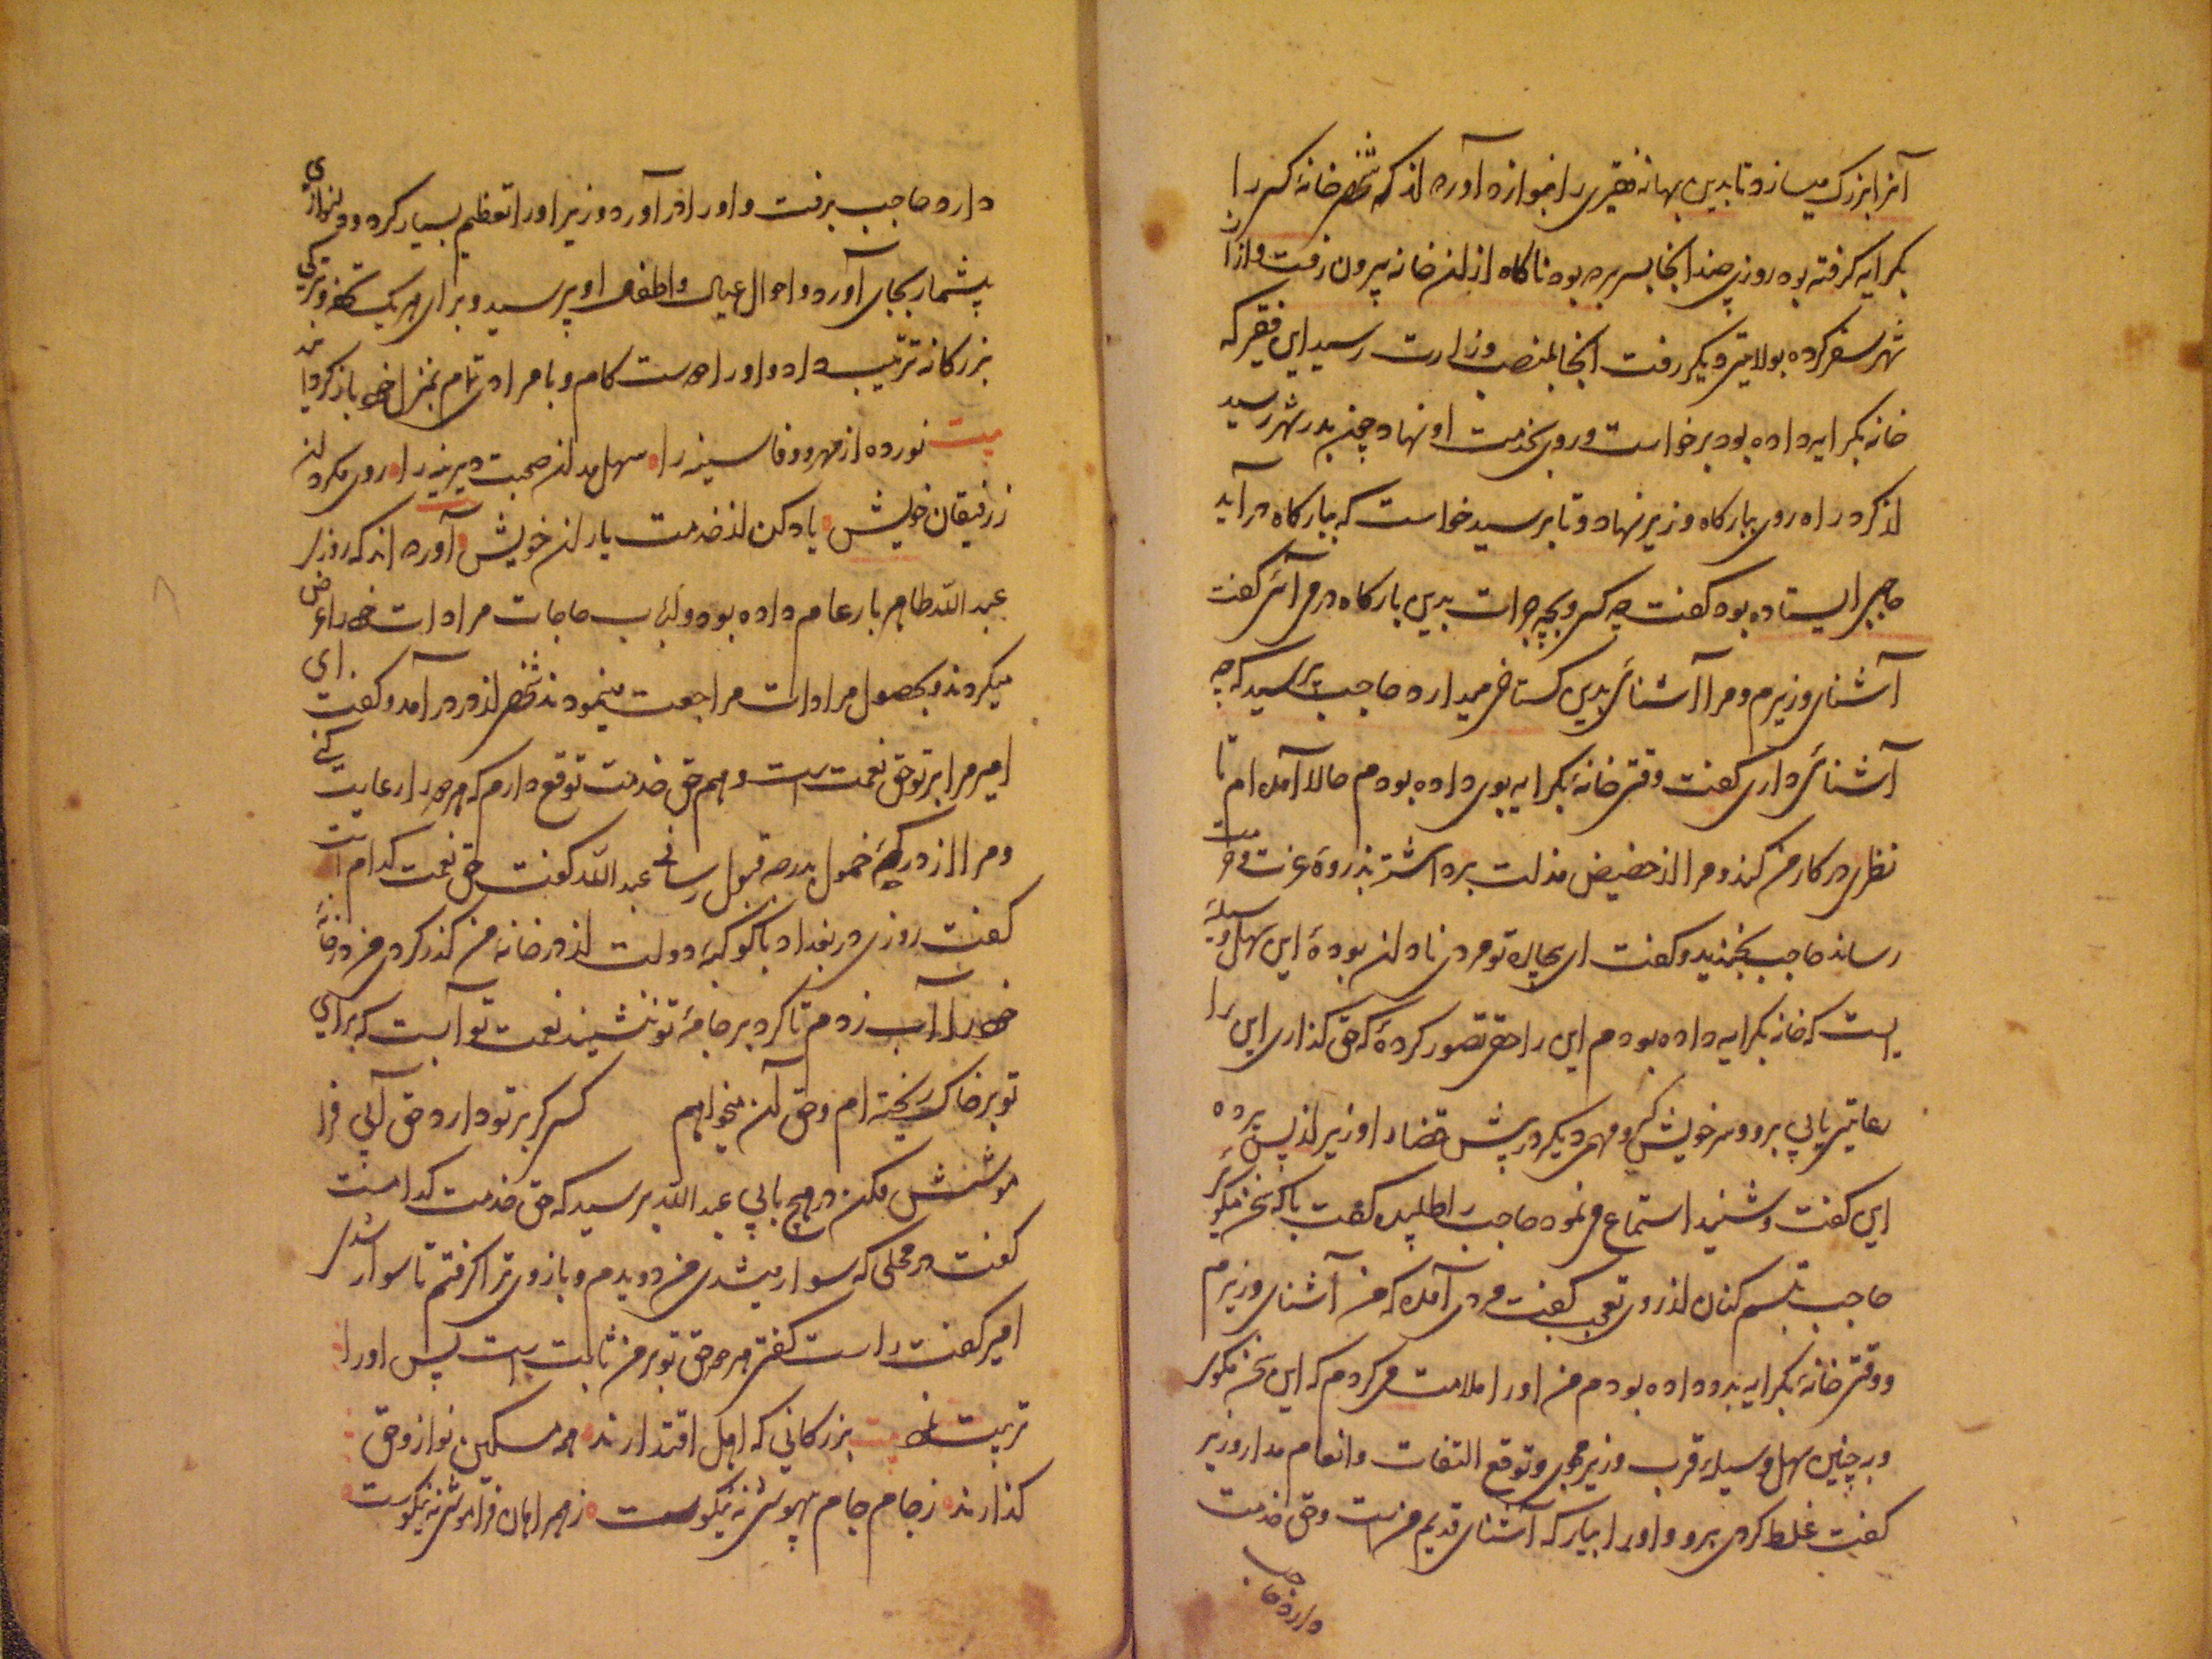 آنرا بزرگ میسازد تا بدین بهانه فقیری را بنوازد آورده اند که شخصی خانهٔ کسی را
بکرایه گرفته بود روزی چند آنجا بسر برده بود ناگاه از ان خانه بیرون رفت و ازان
شهر سفر کرده بولایتی دیگر رفت آنجا بمنصب وزارت رسید این فقیر که
خانه بکرایه داده بود برخواست و روی بخدمت او نهاد چون بدر شهر رسید
از کرد راه روی ببارگاه وزیر نهاد و تا برسید خواست که ببارگاه درآید
حاجبی ایستاده بود گفت چه کسی و بچه جرات بدین بارگاه در می آئی گفت
آشنای وزیرم و مرا آشنائی بدین گستاخی میدارد حاجب پرسید که چه
آشنائی داری گفت وقتی خانهٔ بکرایه بوی داده بودم حالا آمده ام تا
نظری در کار من کند و مرا از حضیض مذلت برداشته بذروهٔ عزت و
رساند حاجب بخندید و گفت ای بیچاره تو مردی نادان بودهٔ این سهل وسیلهٔ
است که خانه بکرایه داده بودم این را حق تصور کردهٔ که حق گذاری این را
رعایتی یابی برو و سر خویش گیر و مهمی دیگر در پیش قضا را وزیر از پس پرده
این گفت و شنید استماع می نمود حاجب را طلبید گفت با که سخن میگوئی
حاجب تبسم کنان از روی تعجب گفت مردی آمده که من آشنای وزیرم
و وقتی خانهٔ بکرایه بدو داده بودم من او را ملامت می کردم که این سخن مگوی
و بچنین سهل وسیله قرب وزیر مجوی و توقع التفات و انعام مدار وزیر
گفت غلط کردی برو و او را بیار که آشنای قدیم منست و حق خدمت
دارد حاجب
دارد حاجب برفت و او را درآورد وزیر او را تعظیم بسیار کرد و دلنوازی
بیشمار بجای آورد و احوال عیال و اطفال او پرسید و برای هر یک تحفه و تبرکی
بزرگانه ترتیب داد و او را دوست کام و بامرادی تمام بمنزل خود باز گردانید
بیت نورده از مهر و وفا سینه را سهل مدان صحبت دیرینه را روی مگردان
ز رفیقان خویش یاد کن از خدمت یاران خویش آورده اند که روزی
عبد الله طاهر بار عام داده بود و ارباب حاجات مرادات خود را عرض
میکردند و بحصول مرادات مراجعت مینمودند شخصی از در درآمد و گفت ای
امیر مرا بر تو حق نعمت است و هم حق خدمت توقع دارم که هر دو را رعایت کنی
و مرا از درکهٔ خمول بدرجهٔ قبول رسانی عبد الله گفت حق نعمت کدام است
گفت روزی در بغداد با کوکبهٔ دولت از در خانهٔ من گذر کردی من در خانهٔ
خود را آب زدم تا گرد بر جامهٔ تو ننشیند نعمت تو آبست که برای
تو بر خاک ریخته ام و حق آن میخواهم کسی کو بر تو دارد حق آبی فرا
موشش مکن در هیچ بابی عبد الله پرسید که حق خدمت کدامست
گفت در محلی که سوار میشدی من دویدم و بازوی ترا گرفتم تا سوار شدی
امیر گفت راست گفتی هر دو حق تو بر من ثابت است پس او را
تربیت نمود بیت بزرگانی که اهل اقتدارند همه مسکین نواز و حق
گذارند ز جام جام بیهوشی نه نیکوست ز همراهان فراموشی نه نیکوست